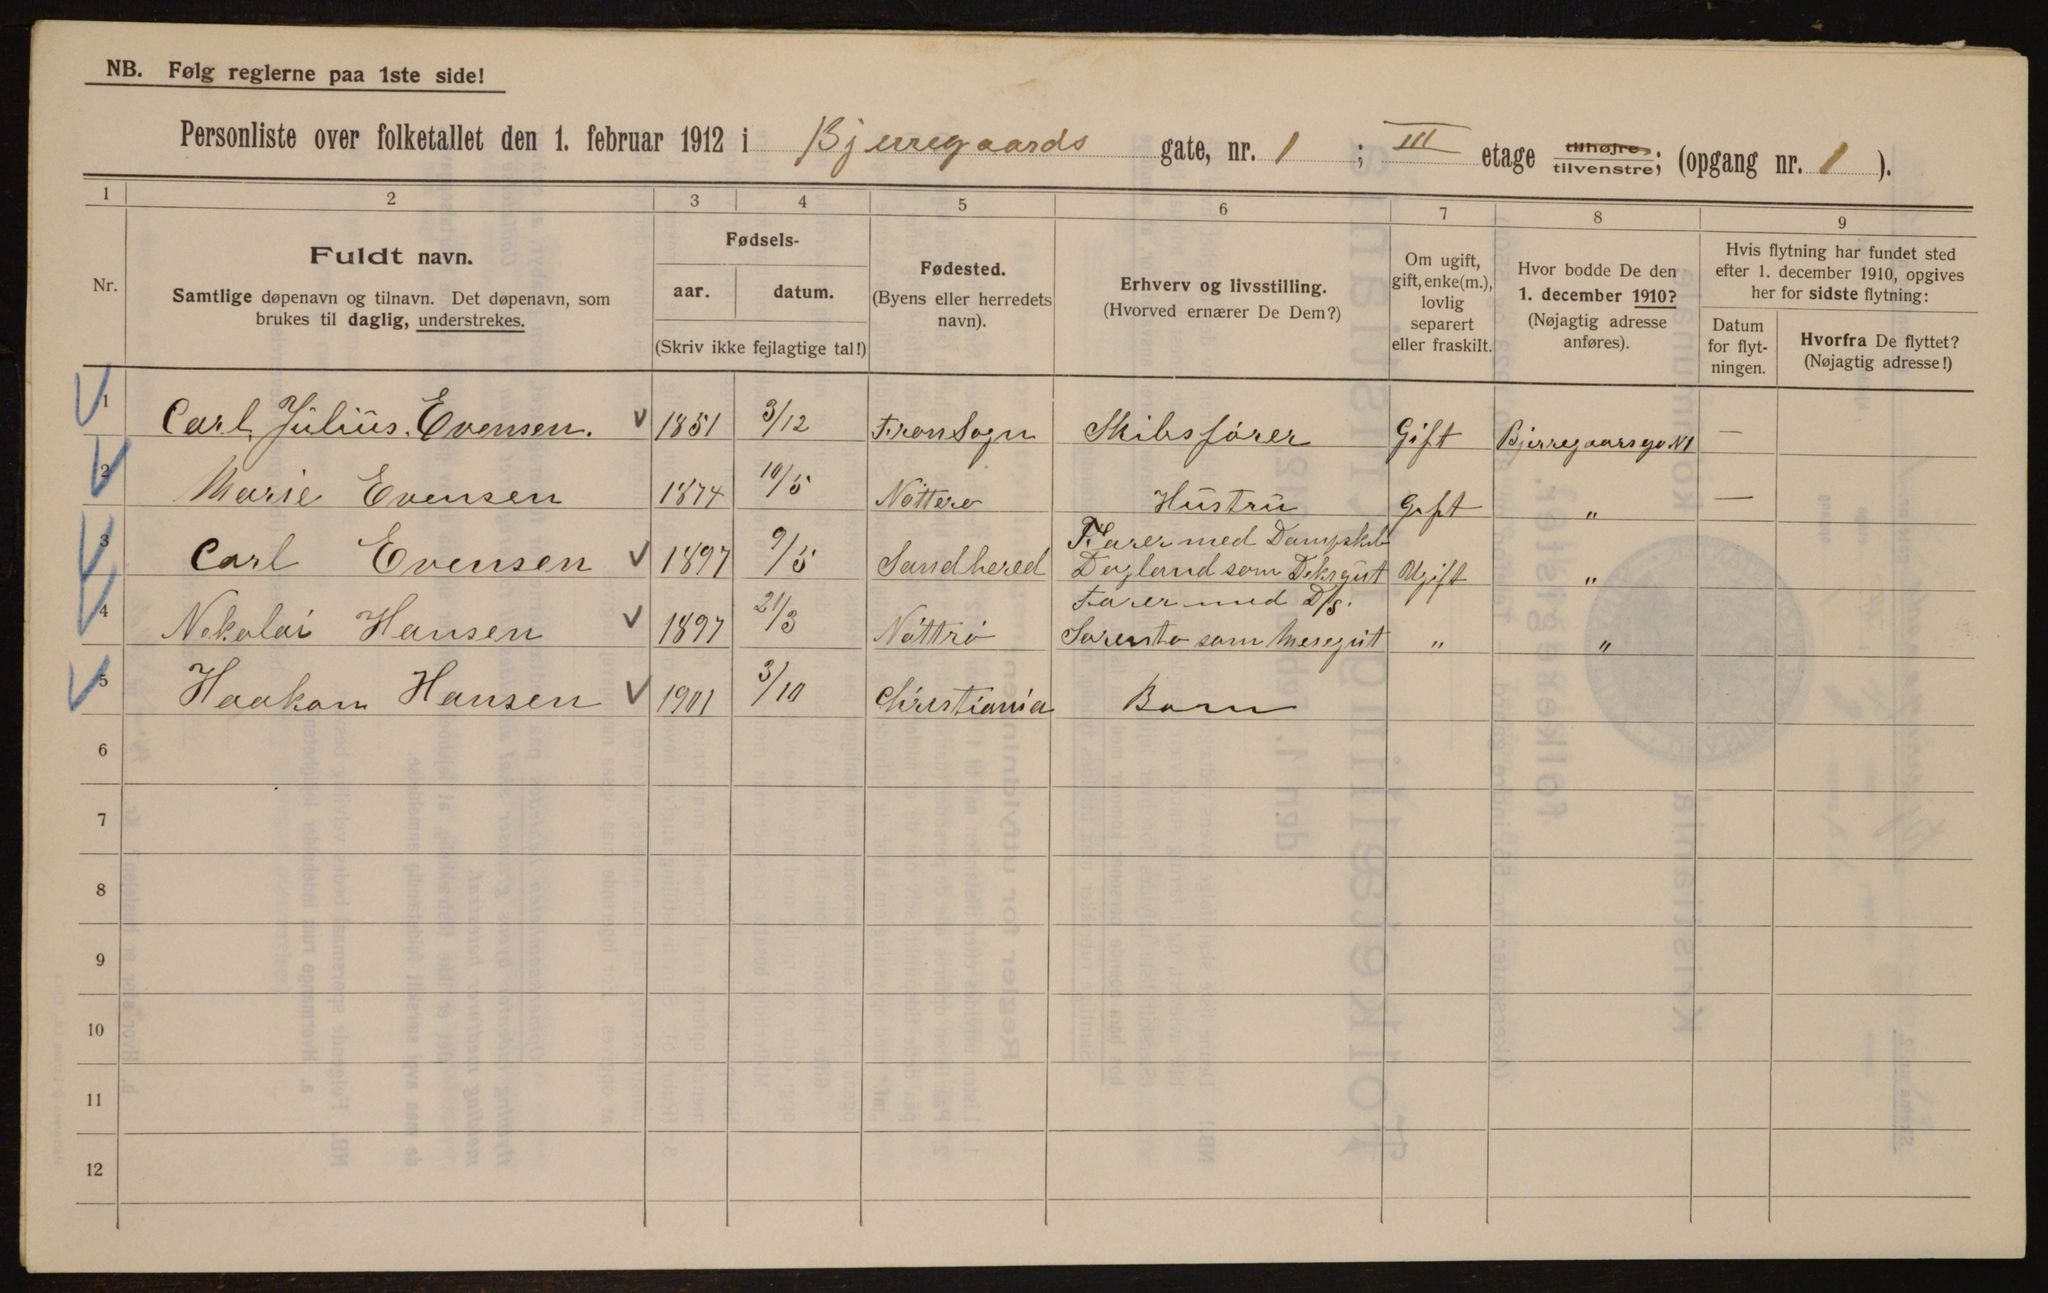 NB. Følg reglerne paa 1ste side!
Personliste over folketallet den 1. februar 1912 i Bjerregaards gate, nr. 1 ; III etage tilhøjre tilvenstre; (opgang nr. 1 ).
1 2 3 4 5 6 7 8 9
Nr.
Fuldt navn.
Samtlige døpenavn og tilnavn. Det døpenavn, som
brukes til daglig, understrekes.
Fødsels-
aar. datum.
(Skriv ikke fejlagtige tal!)
Fødested.
(Byens eller herredets
navn).
Erhverv og livsstilling.
(Hvorved ernærer De Dem?)
Om ugift,
gift, enke(m.),
lovlig
separert
eller fraskilt.
Hvor bodde De den
1. december 1910?
(Nøjagtig adresse
anføres).
Hvis flytning har fundet sted
efter 1. december 1910, opgives
her for sidste flytning:
Datum
for flyt-
ningen.
Hvorfra De flyttet?
(Nøjagtig adresse!)
1 Carl Julius Evensen. 1851 3/12 Fron Sogn Skibsfører Gift Bjerregaarsga N1 —
2 Marie Evensen 1874 10/5 Nøttero Hustru Gift " —
3 Carl Evensen 1897 9/5 Sandhered Farer med Dampskib
Dagland som Deksgut Ugift "
4 Nekolai Hansen 1897 21/3 Nøttrø Farer med D/S.
Sorento som Mesegut " "
5 Haakon Hansen 1901 3/10 Christiania Barn
6
7
8
9
10
11
12